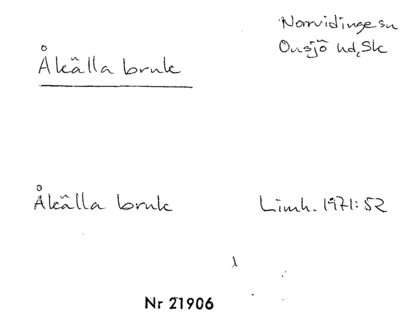 Norrvidinge sn
Onsjö hd, Sk
Åkälla bruk
Åkälla bruk Limh. 1971:52
Nr 21906